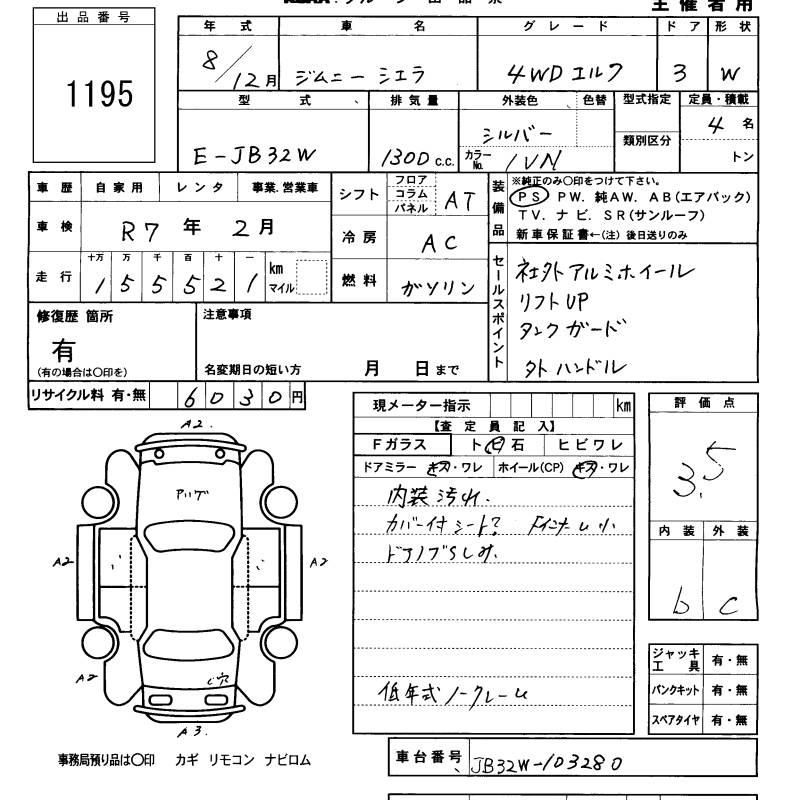 主催者用
出品番号
1195
年式 車名 グレード ドア 形状
8/12月 ジムニー シエラ 4WD エルク 3 W
型式 排気量 外装色 色替 型式指定 定員・積載
E-JB32W 1300 c.c. シルバー 4名
カラーNo. 1VN 類別区分 トン
車歴 自家用 レンタ 事業.営業車
車検 R7年 2月
走行 十万 万 千 百 十 一
1 5 5 5 2 1 km マイル
シフト フロア コラム パネル AT
冷房 AC
燃料 ガソリン
装備品
※純正のみ〇印をつけて下さい。
PS PW. 純AW. AB(エアバック)
TV. ナビ. SR(サンルーフ)
新車保証書←(注) 後日送りのみ
セールスポイント
社外アルミホイール
リフトUP
タンクガード
外ハンドル
修復歴 箇所
有
(有の場合は〇印を)
注意事項
名変期日の短い方 月 日まで
リサイクル料 有・無 6030円
現メーター指示 km
【査定員記入】
Fガラス ト ビ 石 ヒビワレ
ドアミラー キズ・ワレ ホイール(CP) キズ・ワレ
内装汚れ.
カバー付シート?
ドアノブSしみ.
低年式ノークレーム
評価点
3.5
内装 外装
b c
ジャッキ工具 有・無
パンクキット 有・無
スペアタイヤ 有・無
A2.
A2
A2
A2
A3.
事務局預り品は〇印 カギ リモコン ナビロム
車台番号 JB32W-103280